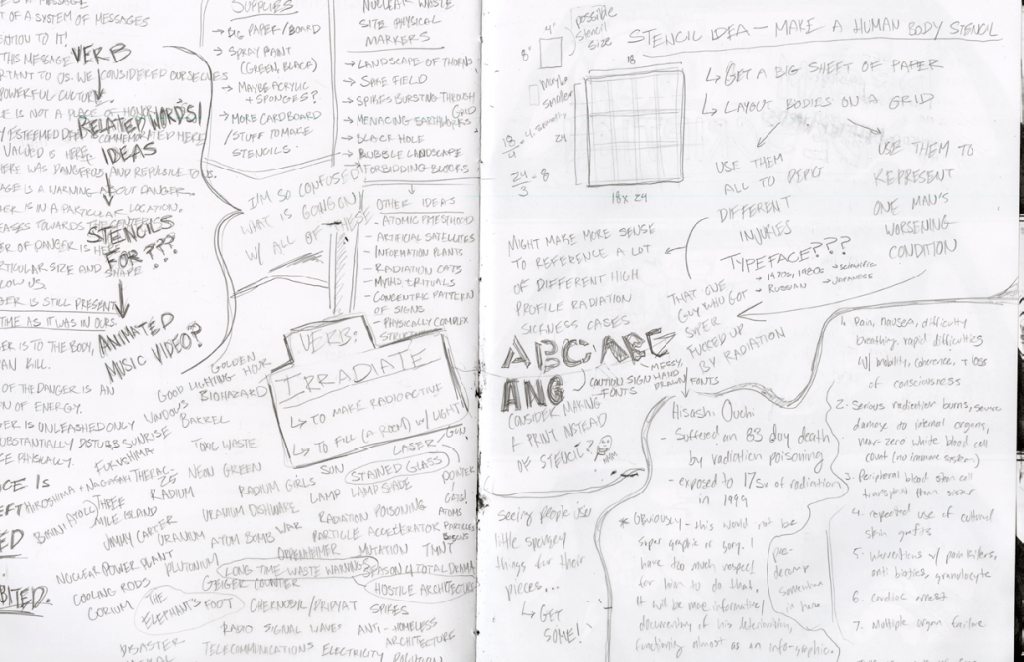 IS A MESSAGE
PART OF A SYSTEM OF MESSAGES
ATTENTION TO IT!
THIS MESSAGE
IMPORTANT TO US. WE CONSIDERED OURSELVES
POWERFUL CULTURE
IS NOT A PLACE OF HONOR
ESTEEMED DEED IS COMMEMORATED HERE
VALUED IS HERE.
HERE WAS DANGEROUS AND REPULSIVE TO US.
IS A WARNING ABOUT DANGER.
IS IN A PARTICULAR LOCATION.
TOWARDS THE CENTER
OF DANGER IS HERE
PARTICULAR SIZE AND SHAPE
BELOW US.
IS STILL PRESENT
TIME AS IT WAS IN OURS.
IS TO THE BODY,
CAN KILL.
OF THE DANGER IS AN
OF ENERGY.
IS UNLEASHED ONLY
SUBSTANTIALLY DISTURB
PHYSICALLY.
VERB
RELATED WORDS/
IDEAS
STENCILS
FOR???
ANIMATED
MUSIC VIDEO?
SUPPLIES
→ BIG PAPER/BOARD
→ SPRAY PAINT
(GREEN, BLACK)
→ MAYBE ACRYLIC
+ SPONGES?
→ MORE CARDBOARD
/STUFF TO MAKE
STENCILS.
NUCLEAR WASTE
SITE PHYSICAL
MARKERS
→ LANDSCAPE OF THORNS
→ SPIKE FIELD
→ SPIKES BURSTING THROUGH
GRID
→ MENACING EARTHWORKS
→ BLACK HOLE
→ RUBBLE LANDSCAPE
→ FORBIDDING BLOCKS
I'M SO CONFUSED
WHAT IS GOING ON
W/ ALL OF THESE
OTHER IDEAS
- ATOMIC PRIESTHOOD
- ARTIFICIAL SATELLITES
- INFORMATION PLANTS
- RADIATION CATS
- MYTHS + RITUALS
- CONCENTRIC PATTERN
OF SIGNS
- PHYSICALLY COMPLEX
VERB:
IRRADIATE
→ TO MAKE RADIOACTIVE
→ TO FILL (A ROOM) W/ LIGHT
GOLDEN
GOOD LIGHTING - HOUR
BIOHAZARD
VARIOUS
BARREL
SUNRISE
TOXIC WASTE
SUN
LASER GUN
STAINED GLASS
POINTER
FUKUSHIMA
HIROSHIMA + NAGASAKI
THERAC-25
NEON GREEN
RADIUM GIRLS
LAMP
LAMPSHADE
RADIUM
URANIUM DISHWARE
RADIATION POISONING
ATOMS
BIKINI ATOLL
THREE
MILE ISLAND
JIMMY CARTER
URANIUM
ATOM BOMB
WAR
PARTICLE ACCELERATOR
PARTICLES
BOSONS
NUCLEAR POWER PLANT
PLUTONIUM
OPPENHIMER
MUTATION
TMNT
LONG TIME WASTE WARNINGS
SEASON 4 TOTAL DRAMA
COOLING RODS
GEIGER COUNTER
HOSTILE ARCHITECTURE
CORIUM
THE
ELEPHANT'S FOOT
CHERNOBYL/PRIPYAT
SPIKES
RADIO SIGNAL WAVES
ANTI-HOMELESS
ARCHITECTURE
DISASTER
TELECOMMUNICATIONS
ELECTRICITY
4"
8"
possible
stencil
size
maybe
smaller
18
24
18/4
24/3 = 8
18 x 24
STENCIL IDEA — MAKE A HUMAN BODY STENCIL
↳ GET A BIG SHEET OF PAPER
↳ LAYOUT BODIES ON A GRID
USE THEM
ALL TO DEPICT
DIFFERENT
INJURIES
USE THEM TO
REPRESENT
ONE MAN'S
WORSENING
CONDITION
MIGHT MAKE MORE SENSE
TO REFERENCE A LOT
OF DIFFERENT HIGH
PROFILE RADIATION
SICKNESS CASES
TYPEFACE???
→ 1970s, 1980s → SCIENTIFIC
→ RUSSIAN → JAPANESE
THAT ONE
GUY WHO GOT
SUPER
FUCKED UP
BY RADIATION
ABC ABC
ANG
CAUTION SIGN
FONTS
MESSY,
HAND
DRAWN
FONTS
CONSIDER MAKING
A PRINT INSTEAD
OF STENCIL?
HMM
seeing people use
little spongey
things for their
pieces...
↳ GET
SOME!
Hisashi Ouchi
- Suffered an 83 day death
by radiation poisoning
- exposed to 17sv of radiation
in 1999
* Obviously - this would not be
super graphic or gory. I
have too much respect
for him to do that.
It will be more informative/
documenting of his deterioration,
functioning almost as an info-graphic.
1. Pain, nausea, difficulty
breathing, rapid difficulties
w/ mobility, coherence, + loss
of consciousness
2. Serious radiation burns, severe
damage to internal organs,
near-zero white blood cell
count (no immune system)
3. Peripheral blood stem cell
transplant
4. repeated use of cultural
skin grafts
5. Interventions w/ pain killers,
anti biotics, granulocyte
6. Cardiac arrest
7. Multiple organ failure